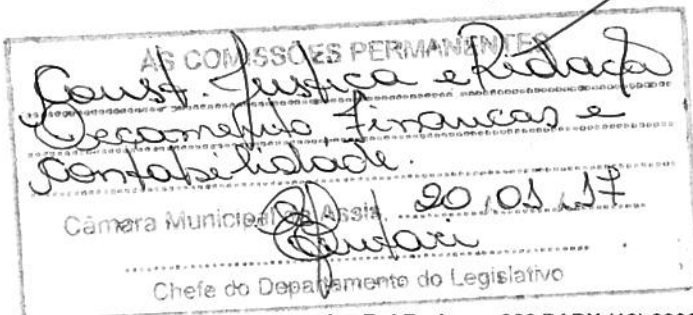 ÀS COMISSÕES PERMANENTES
Const. Justiça e Redação
Orçamento Finanças e
Contabilidade.
Câmara Municipal de Assis, 20,01,17
Chefe do Departamento do Legislativo